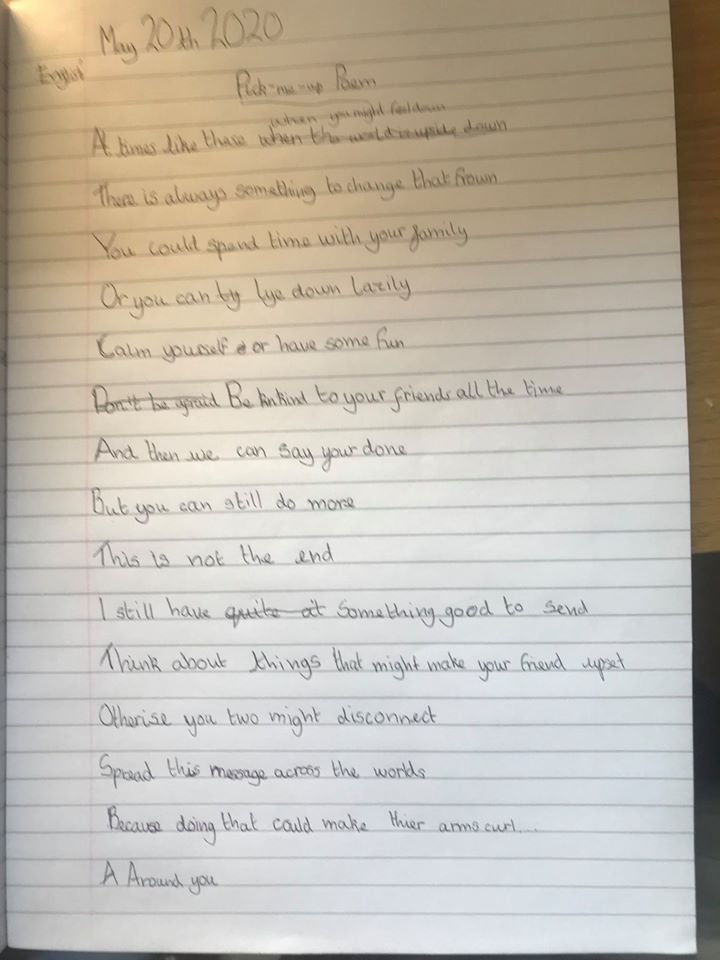 May 20th 2020
English
Pick-me-up Poem
when you might feel down
At times like these when the world is upside down
There is always something to change that frown
You could spend time with your family
Or you can ty lye down lazily
Calm yourself or have some fun
Don't be afraid Be kin kind to your friends all the time
And then we can say your done
But you can still do more
This is not the end
I still have quite a something good to send
Think about things that might make your friend upset
Otherise you two might disconnect
Spread this message across the worlds
Because doing that could make thier arms curl...
A Around you